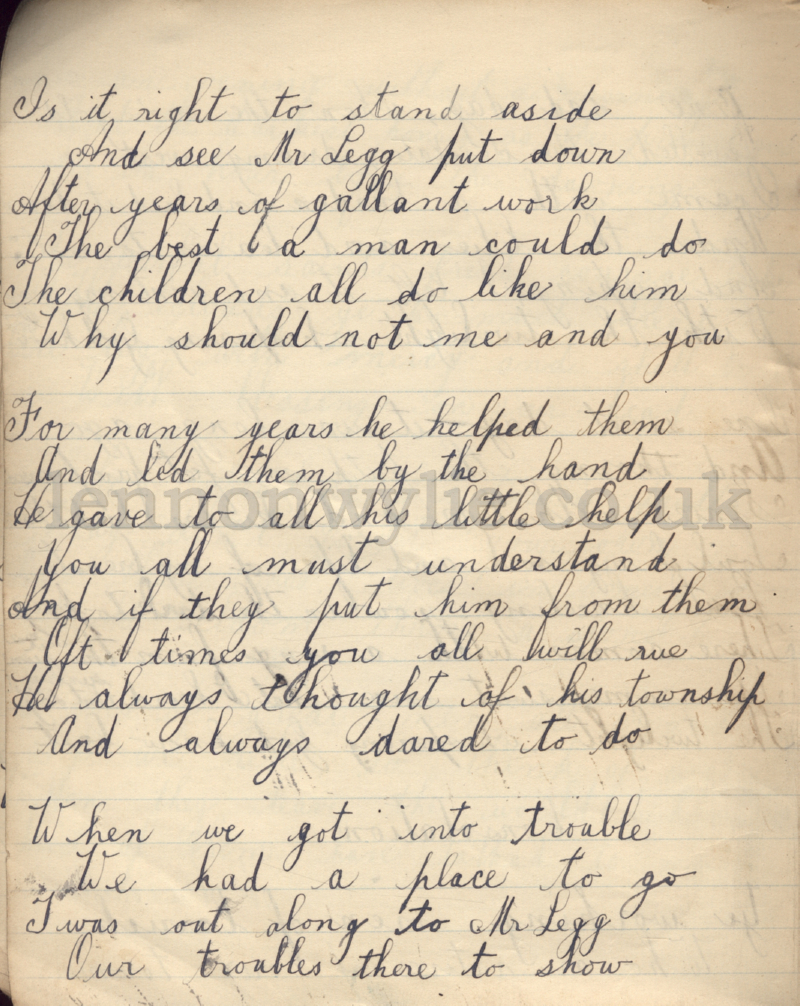 Is it right to stand aside
And see Mr Legg put down
After years of gallant work
The best a man could do
The children all do like him
Why should not me and you
For many years he helped them
And led them by the hand
He gave to all his little help
You all must understand
And if they put him from them
Oft times you all will rue
He always thought of his township
And always dared to do
When we got into trouble
We had a place to go
Twas out along to Mr Legg
Our troubles there to show
lennonwylie.co.uk